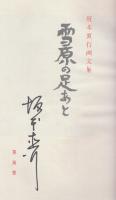 坂本直行画文集
雪原の足あと
坂本直行
茗溪堂